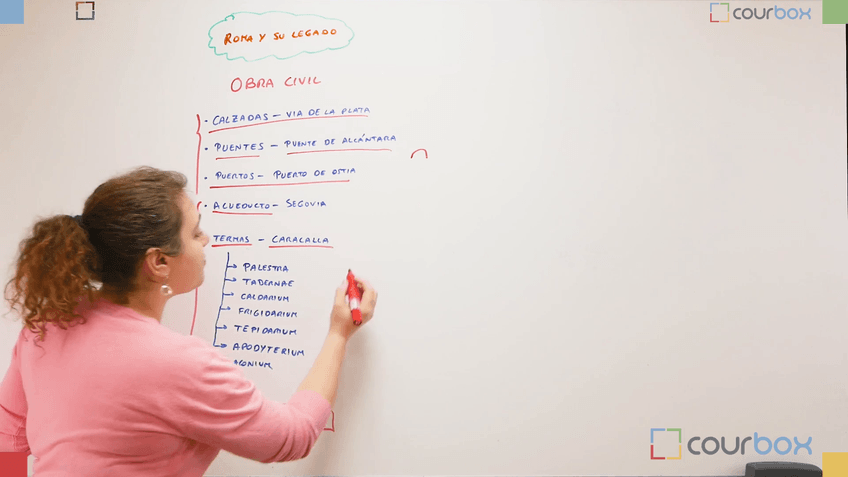 courbox
ROMA Y SU LEGADO
OBRA CIVIL
· CALZADAS – VIA DE LA PLATA
· PUENTES – PUENTE DE ALCÁNTARA
· PUERTOS – PUERTO DE OSTIA
· ACUEDUCTO – SEGOVIA
TERMAS – CARACALLA
PALESTRA
TABERNAE
CALDARIUM
FRIGIDARIUM
TEPIDARIUM
APODYTERIUM
courbox